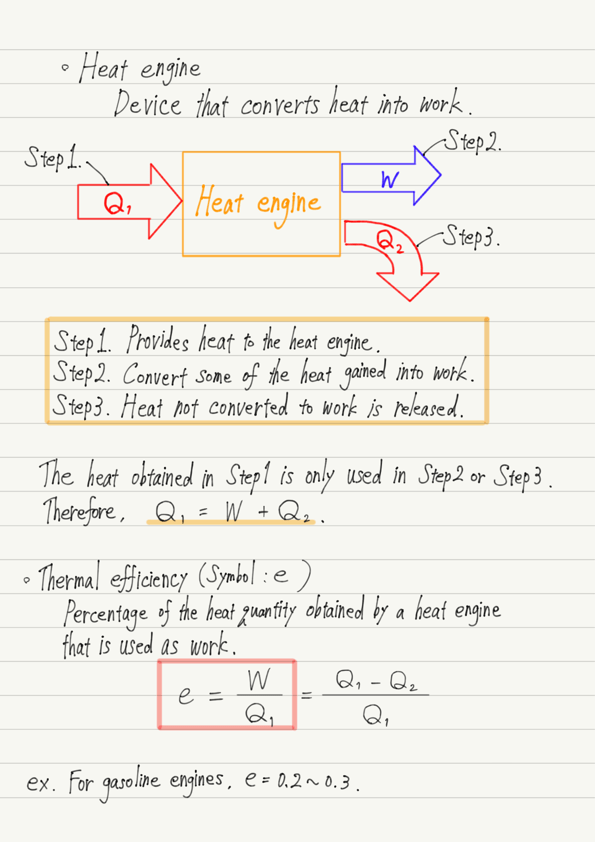 ◦ Heat engine
Device that converts heat into work.
Step1.
Step2.
Q₁
Heat engine
W
Q₂
Step3.
Step1. Provides heat to the heat engine.
Step2. Convert some of the heat gained into work.
Step3. Heat not converted to work is released.
The heat obtained in Step1 is only used in Step2 or Step3.
Therefore, Q₁ = W + Q₂.
◦ Thermal efficiency (Symbol : e)
Percentage of the heat quantity obtained by a heat engine
that is used as work.
e = W / Q₁ = Q₁ - Q₂ / Q₁
ex. For gasoline engines, e = 0.2 ~ 0.3.